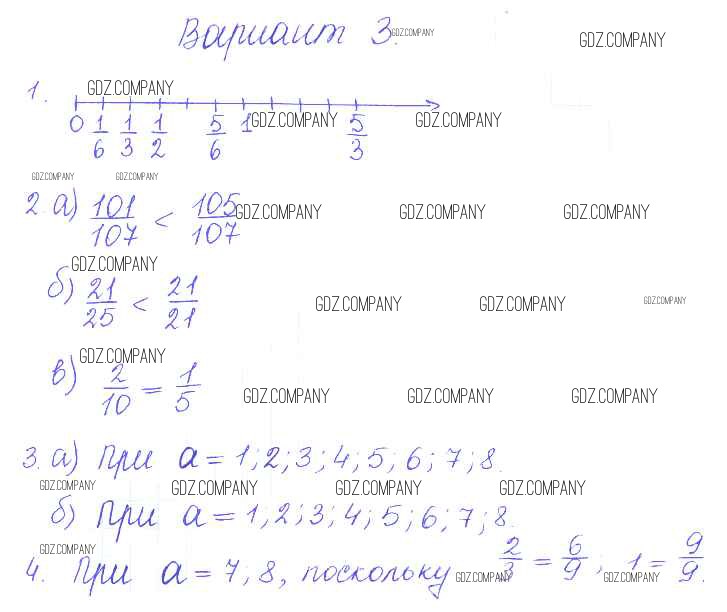 Вариант 3. GDZ.COMPANY GDZ.COMPANY
1. GDZ.COMPANY
0 1/6 1/3 1/2 5/6 1 5/3 GDZ.COMPANY GDZ.COMPANY
GDZ.COMPANY GDZ.COMPANY
2. а) 101/107 < 105/107 GDZ.COMPANY GDZ.COMPANY GDZ.COMPANY
GDZ.COMPANY
б) 21/25 < 21/21 GDZ.COMPANY GDZ.COMPANY GDZ.COMPANY
GDZ.COMPANY
в) 2/10 = 1/5 GDZ.COMPANY GDZ.COMPANY GDZ.COMPANY
3. а) При a = 1; 2; 3; 4; 5; 6; 7; 8.
GDZ.COMPANY GDZ.COMPANY GDZ.COMPANY GDZ.COMPANY
б) При a = 1; 2; 3; 4; 5; 6; 7; 8.
GDZ.COMPANY
4. При a = 7; 8, поскольку 2/3 = 6/9; 1 = 9/9. GDZ.COMPANY GDZ.COMPANY